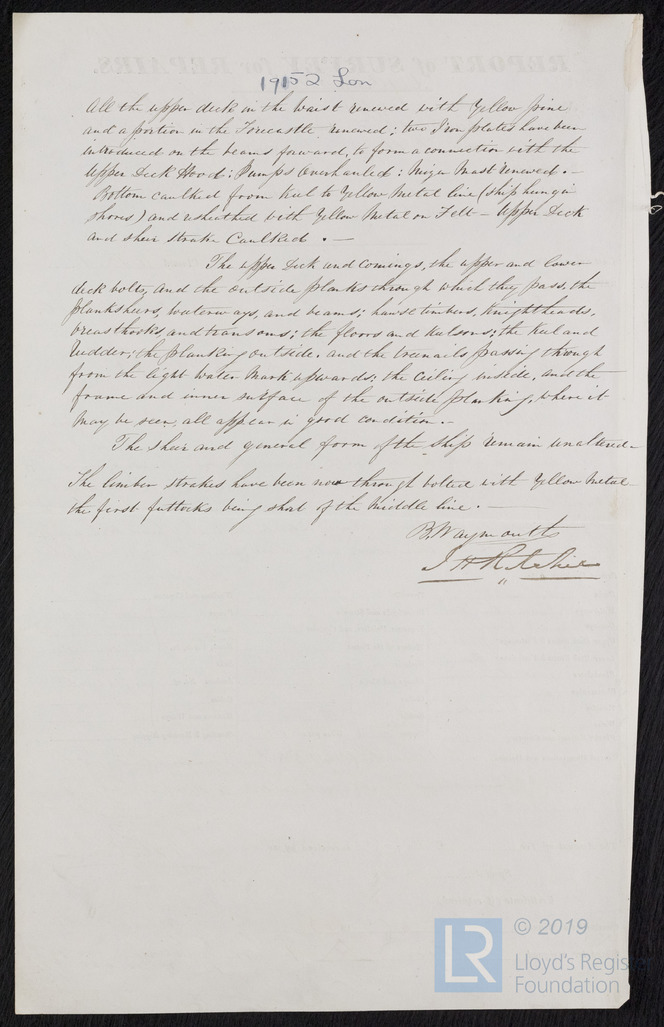 19152 Lon
All the upper deck in the waist renewed with Yellow pine
and a portion in the Forecastle renewed; two Iron plates have been
introduced on the beams forward, to form a connection with the
Upper Deck Hood: Pumps Overhauled: Mizen Mast renewed. -
Bottom caulked from keel to Yellow Metal line (ship hung in
shores) and resheathed with Yellow Metal on Felt - Upper Deck
and sheer strake Caulked. -
The upper Deck and comings, the upper and lower
deck bolts, and the outside planks through which they pass, the
planksheers, waterways, and beams; hawse timbers, Knightheads,
breasthooks, and transoms; the floors and keelsons; the keel and
Rudder; the planking outside, and the treenails passing through
from the light water mark upwards; the ceiling inside, and the
frame and inner surface of the outside planking, where it
may be seen, all appear in good condition. -
The sheer and general form of the ship remain unaltered -
The limber strakes have been now through bolted with Yellow Metal
the first futtocks being short of the middle line. -
B. Waymouth
J H Ritchie
REPORT of SURVEY for REPAIRS.
LR
© 2019
Lloyd's Regis
Foundation